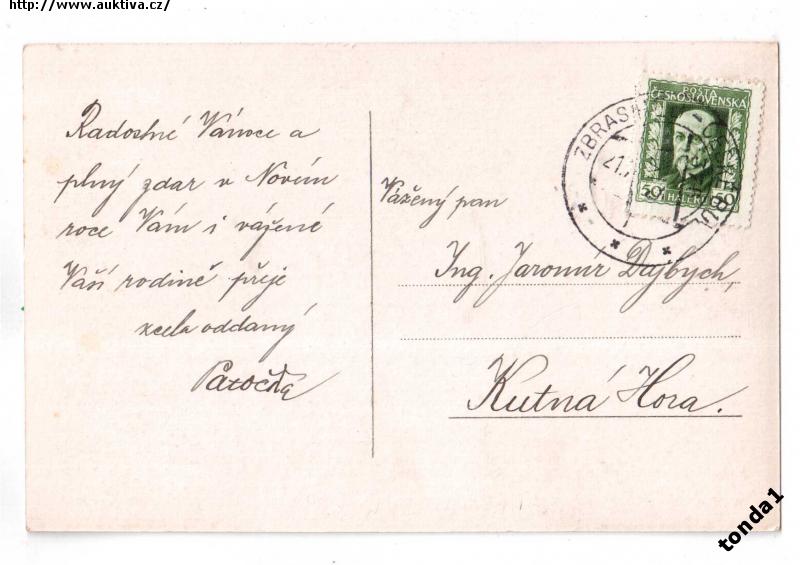 http://www.auktiva.cz/
Radostné Vánoce a
plný zdar v Novém
roce Vám i vážené
Vaší rodině přeje
zcela oddaný
POŠTA
ČESKOSLOVENSKÁ
50 HALÉŘŮ 50
ZBRAS
21.
Vážený pan
Ing. Jaromír Dajbych,
Kutná Hora.
tonda1